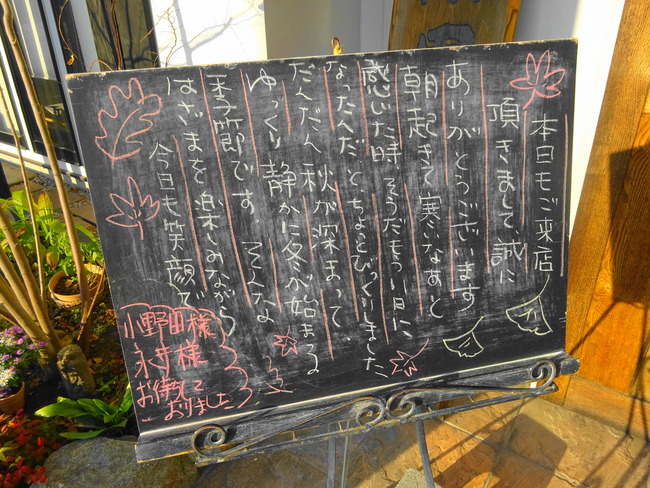 本日もご来店
頂きまして、誠に
ありがとうございます
朝起きて寒いなあと
感じた時そうだもう11月に
なったんだとちょとびっくりしました
だんだん秋が深まって、
ゆっくり静かに冬が始まる
季節です。そんな
はざまを楽しみながら
今日も笑顔で
小野田様
永井様
お待ちして
おりました